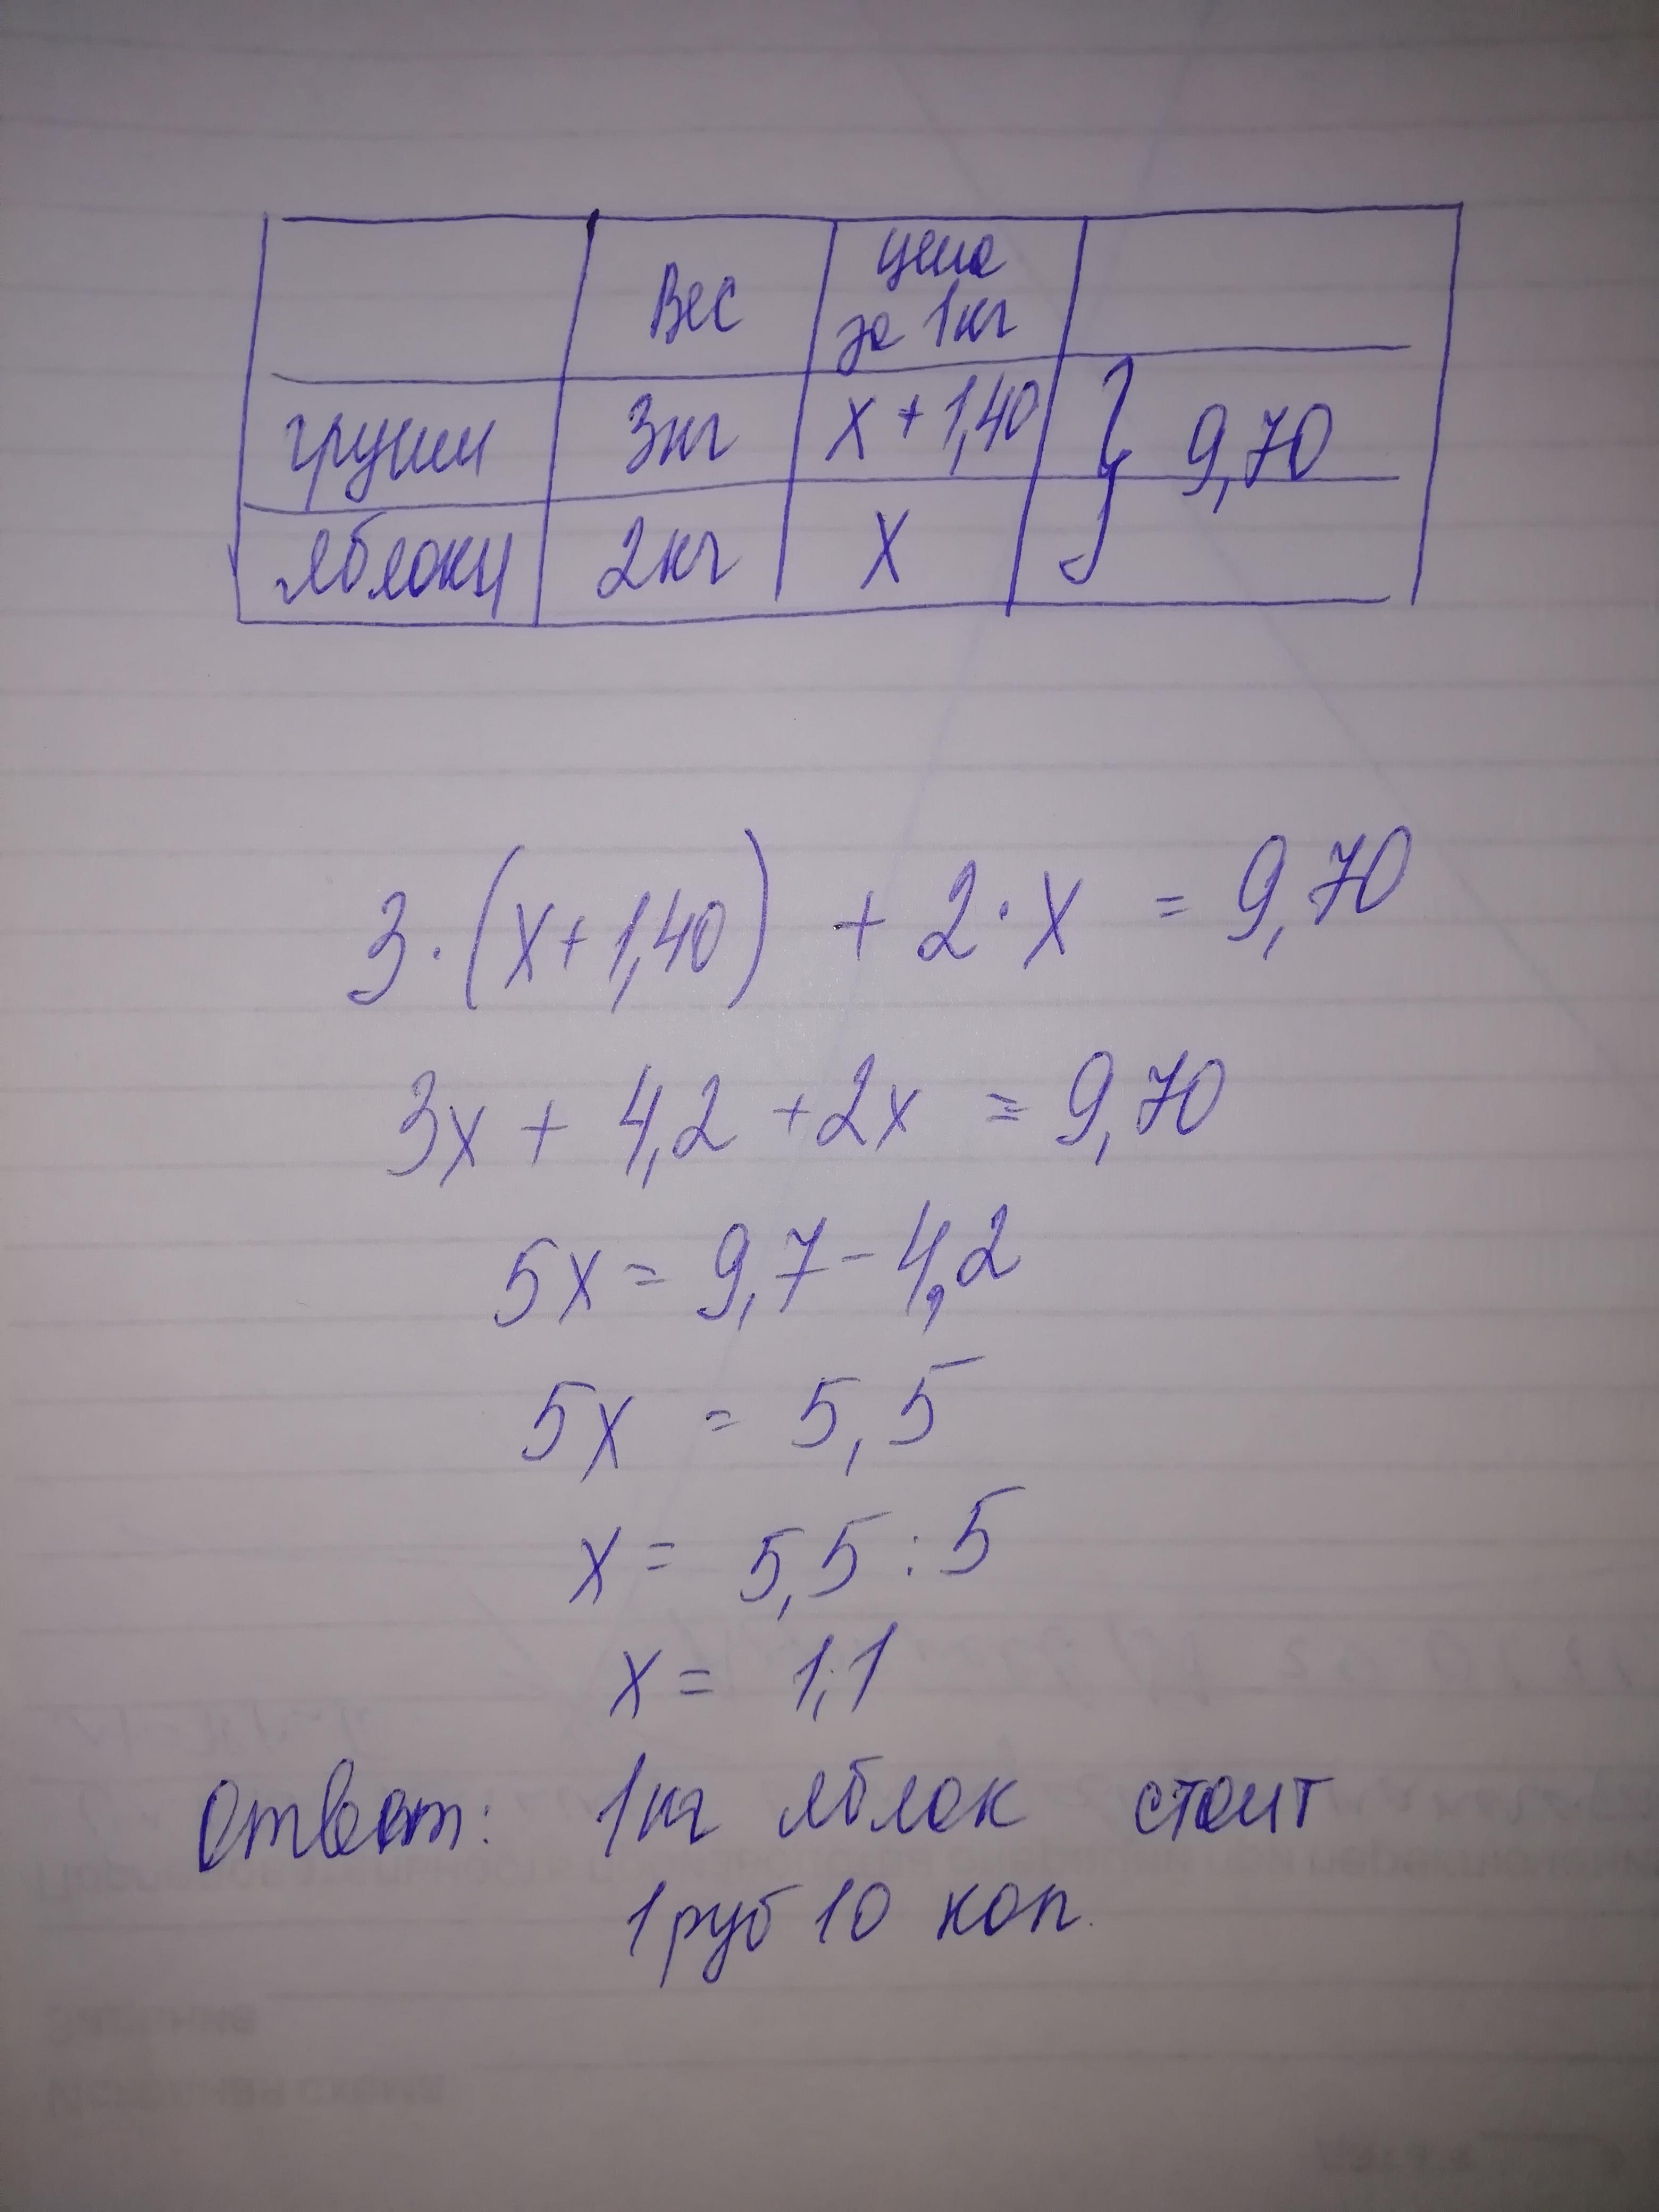 Вес
цена
за 1кг
груши 3кг х + 1,40 } 9,70
яблоки 2кг х
3·(х+1,40) + 2·х = 9,70
3х + 4,2 + 2х = 9,70
5х = 9,7 - 4,2
5х = 5,5
х = 5,5 : 5
х = 1,1
Ответ: 1кг яблок стоит
1 руб 10 коп.